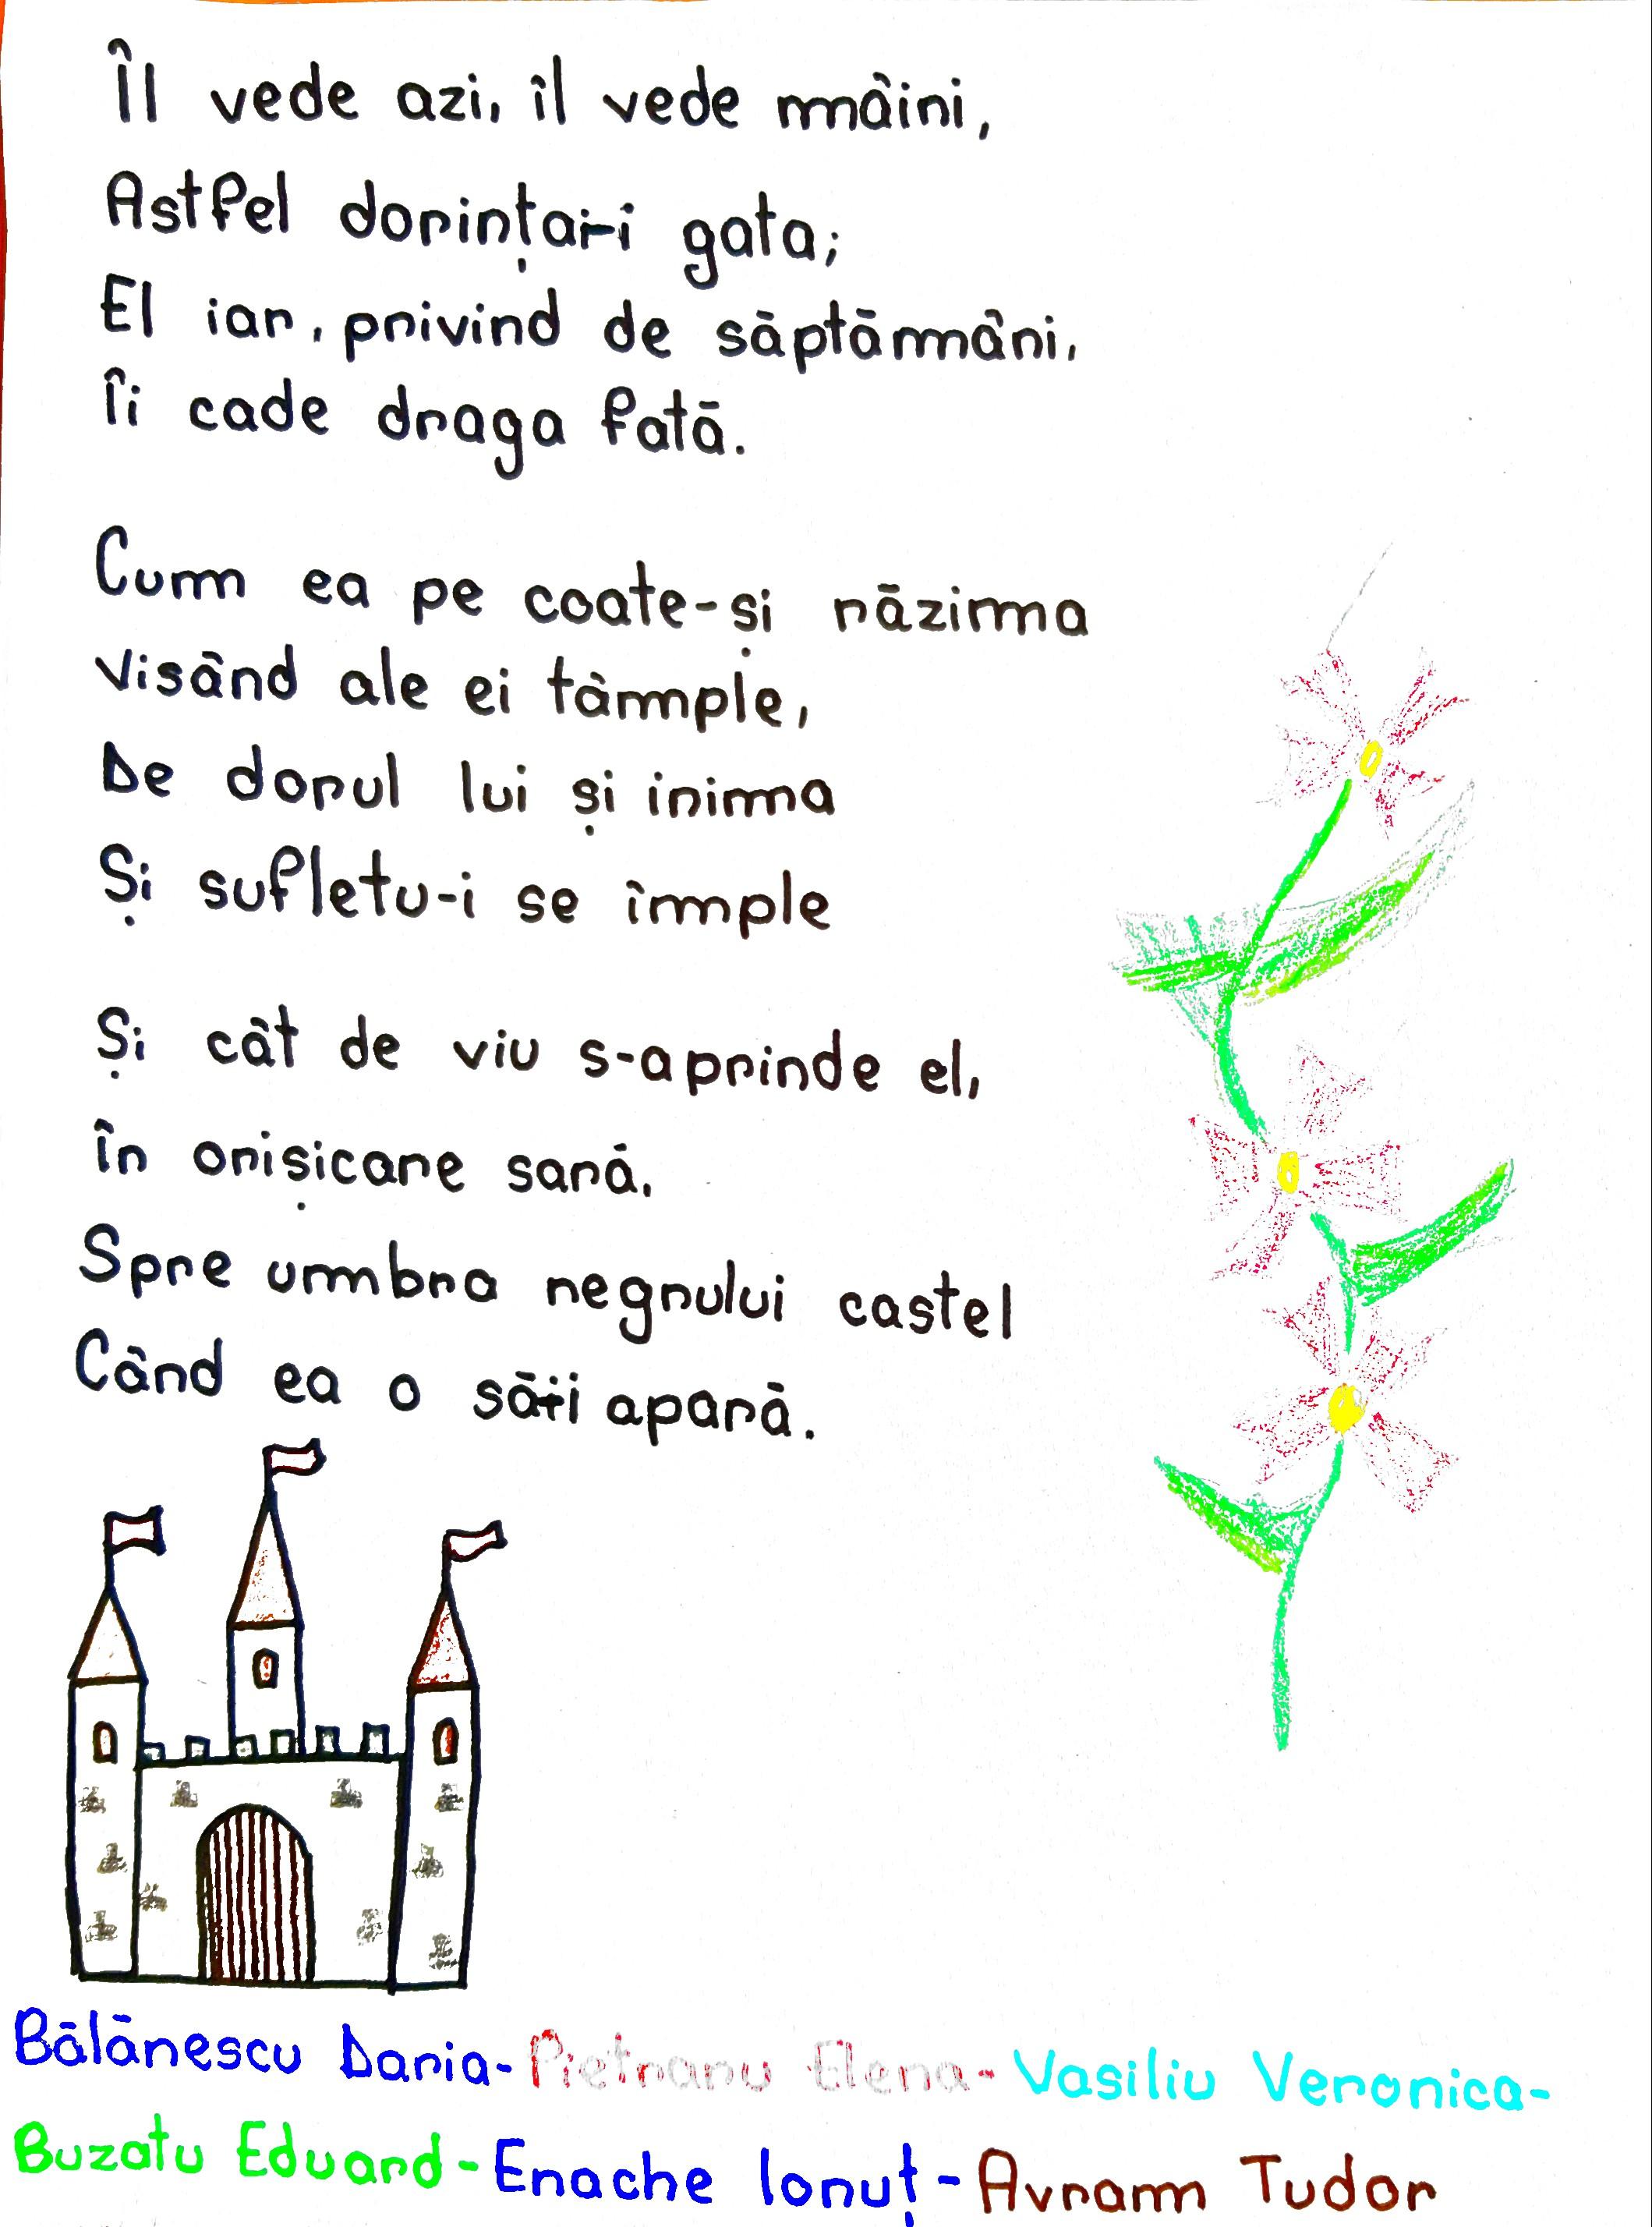 Îl vede azi, îl vede mâini,
Astfel dorința-i gata;
El iar, privind de săptămâni,
Îi cade draga fată.
Cum ea pe coate-și răzima
Visând ale ei tâmple,
De dorul lui și inima
Și sufletu-i se împle
Și cât de viu s-aprinde el,
În orișicare sară,
Spre umbra negrului castel
Când ea o să-i apară.
Bălănescu Daria-Pietraru Elena-Vasiliu Veronica-
Buzatu Eduard-Enache Ionuț-Avram Tudor